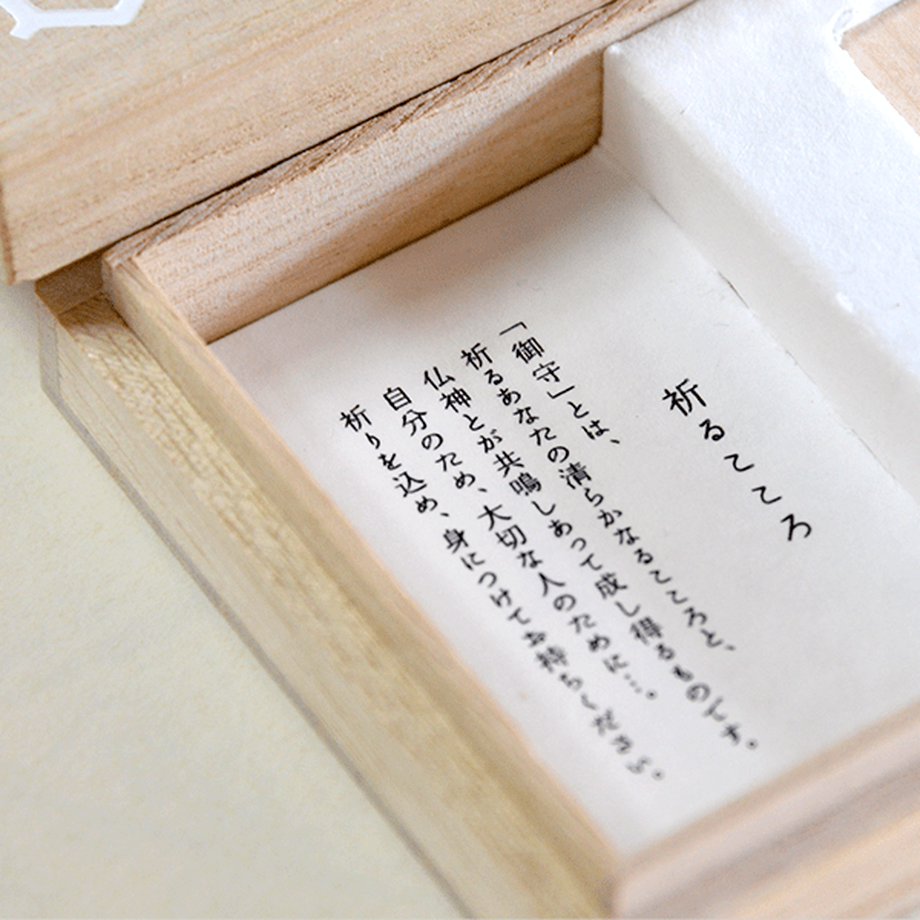 祈るこころ
「御守」とは、
祈るあなたの清らかなるこころと、
仏神とが共鳴しあって成し得るものです。
自分のため、大切な人のために…。
祈りを込め、身につけてお持ちください。